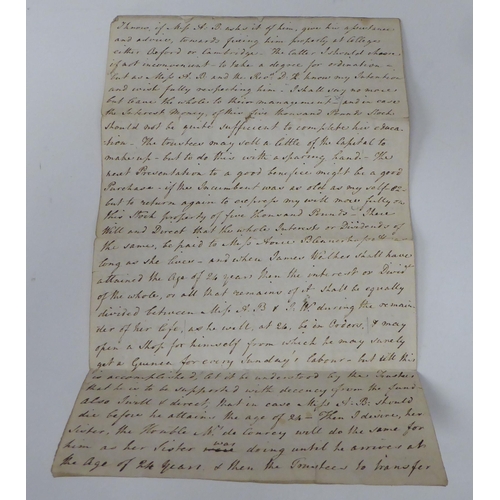 I know, if Miss A. B. asks it of him, give his assistance
and advice, towards fixing him properly at College
either Oxford or Cambridge. The latter I should choose,
if not inconvenient - to take a degree for ordination -
but as Miss A. B and the Revd. D. H know my Intention
and wish fully respecting him - I shall say no more
but leave the whole to their management - and in case
the Interest Money, of this five thousand Pounds Stock
should not be quite sufficient to complete his educa
tion - The trustees may sell a little of the Capital to
make up - but to do this with a sparing hand - The
next Presentation to a good benefice might be a good
Purchase - if the Incumbent was as old as my self 82 -
but to return again to express my will more fully on
this Stock property of five thousand Pounds - I here
Will and Direct that the whole Interest or Dividends of
the same, be paid to Miss Anne as
long as she lives - and when James Walker shall have
attained the Age of 24 years then the interest or Divids
of the whole, or all that remains of it shall be equally
divided between Miss A. B & J. W during the remain
der of her life, as he will, at 24, be in Orders, & may
open a Shop for himself from which he may surely
get a Guinea for every Sunday's labour - but till this
is accomplished, let it be understood by the Trustees
that he is to be supported with decency from the Fund
also I will & direct, that in case Miss A. B. should
die before he attains the age of 24 - Then I desire, her
Sister, the Honble. Mrs. de Courcy will do the same for
him as her Sister was doing until he arrives at
the Age of 24 Years & then the Trustees to transfer